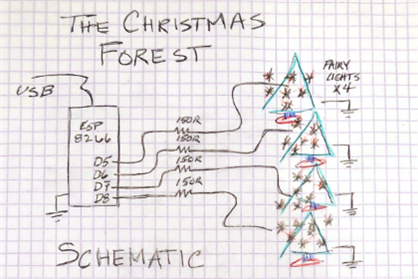 THE CHRISTMAS
FOREST
USB
ESP
8266
D5
D6
D7
D8
150R
150R
150R
150R
FAIRY
LIGHTS
X4
SCHEMATIC